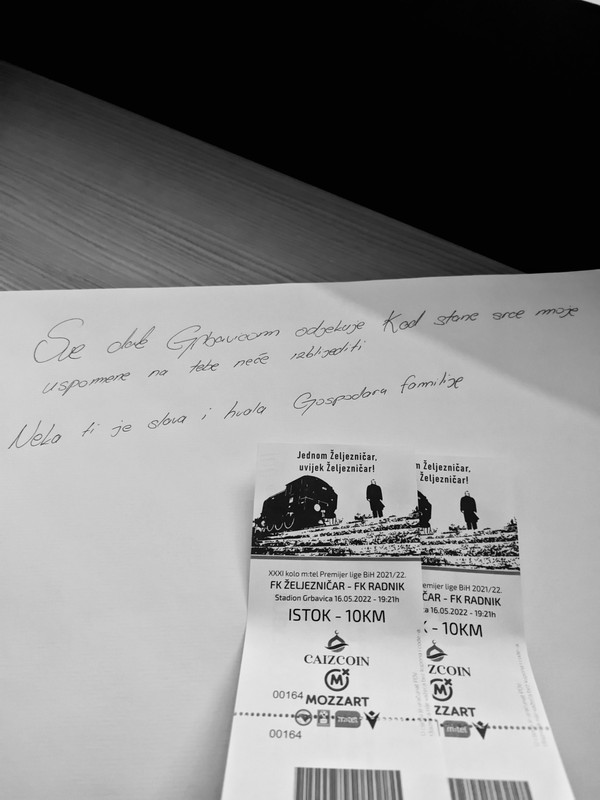 Sve dok Grbavicom odjekuje Kad stane srce moje
uspomene na tebe neće izblijediti
Neka ti je slava i hvala Gospodaru familije
Jednom Željezničar,
uvijek Željezničar!
XXXI kolo m:tel Premijer lige BiH 2021/22.
FK ŽELJEZNIČAR - FK RADNIK
Stadion Grbavica 16.05.2022 - 19:21h
ISTOK - 10KM
CAIZCOIN
MOZZART
00164
00164
m Željezničar,
Željezničar!
emijer lige BiH 2021/22.
ČAR - FK RADNIK
ca 16.05.2022 - 19:21h
K - 10KM
ZCOIN
ZZART
m:tel